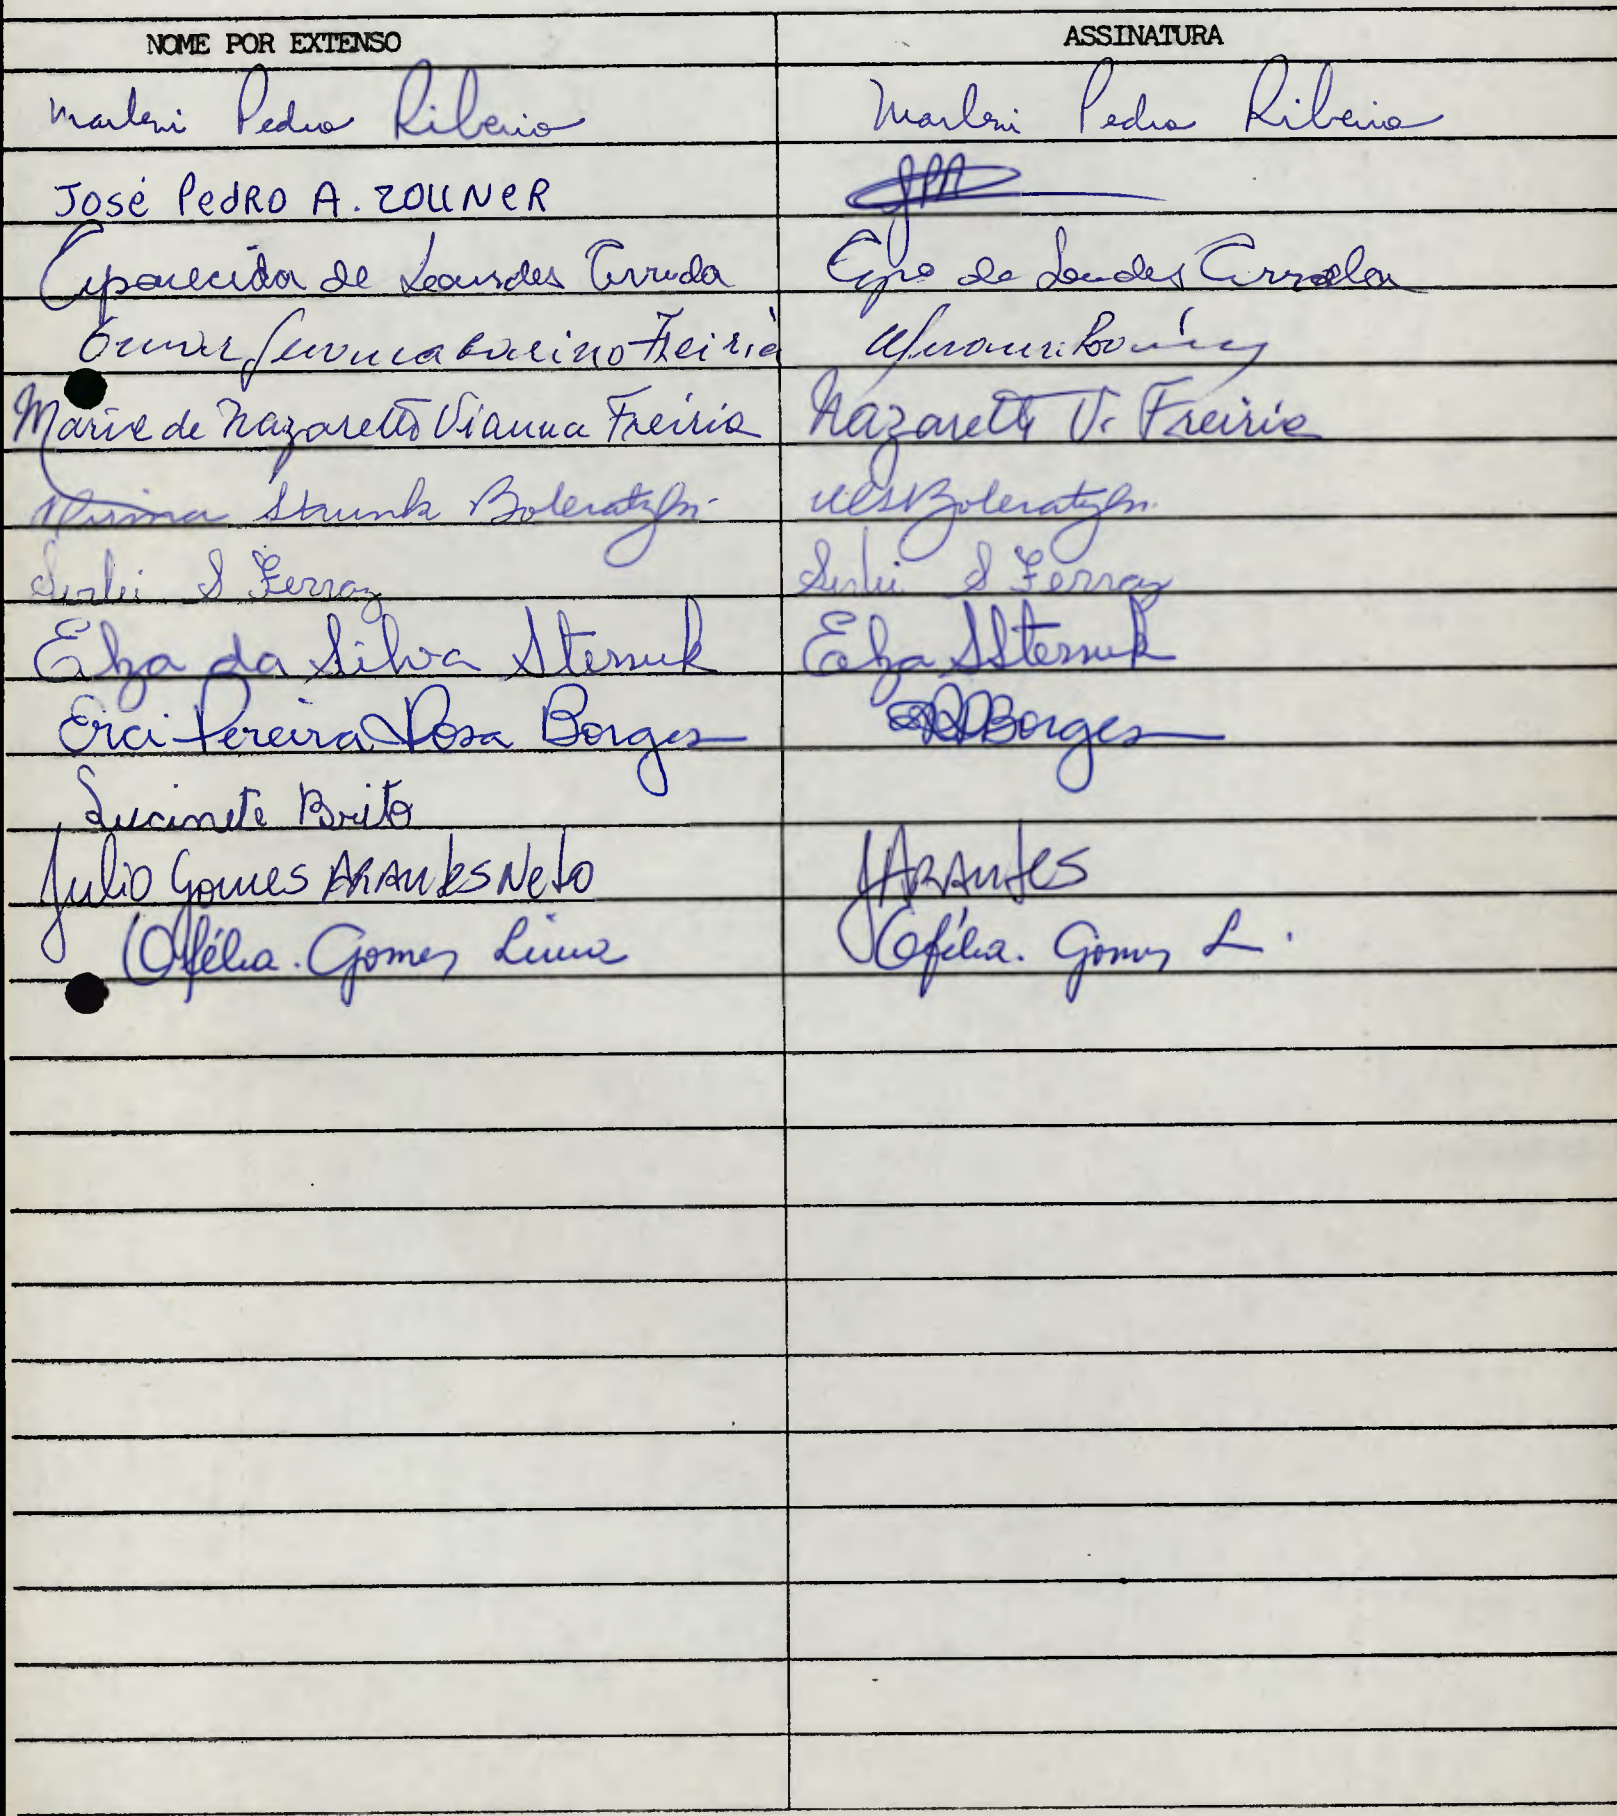 NOME POR EXTENSO ASSINATURA
Marleni Pedro Ribeiro Marleni Pedro Ribeiro
José Pedro A. ZOLLNER
Aparecida de Lourdes Arruda Apa de Lourdes Arruda
Freiria
Maria de Nazareth Vianna Freiria Nazareth V. Freiria
Strunk
S Ferraz S Ferraz
Elza da Silva Sternuk Elza SSternuk
Erci Pereira Rosa Borges Borges
Lucinete Brito
Julio Gomes ARANtES Neto JARANtES
Ofélia. Gomes Lima Ofélia. Gomes L.